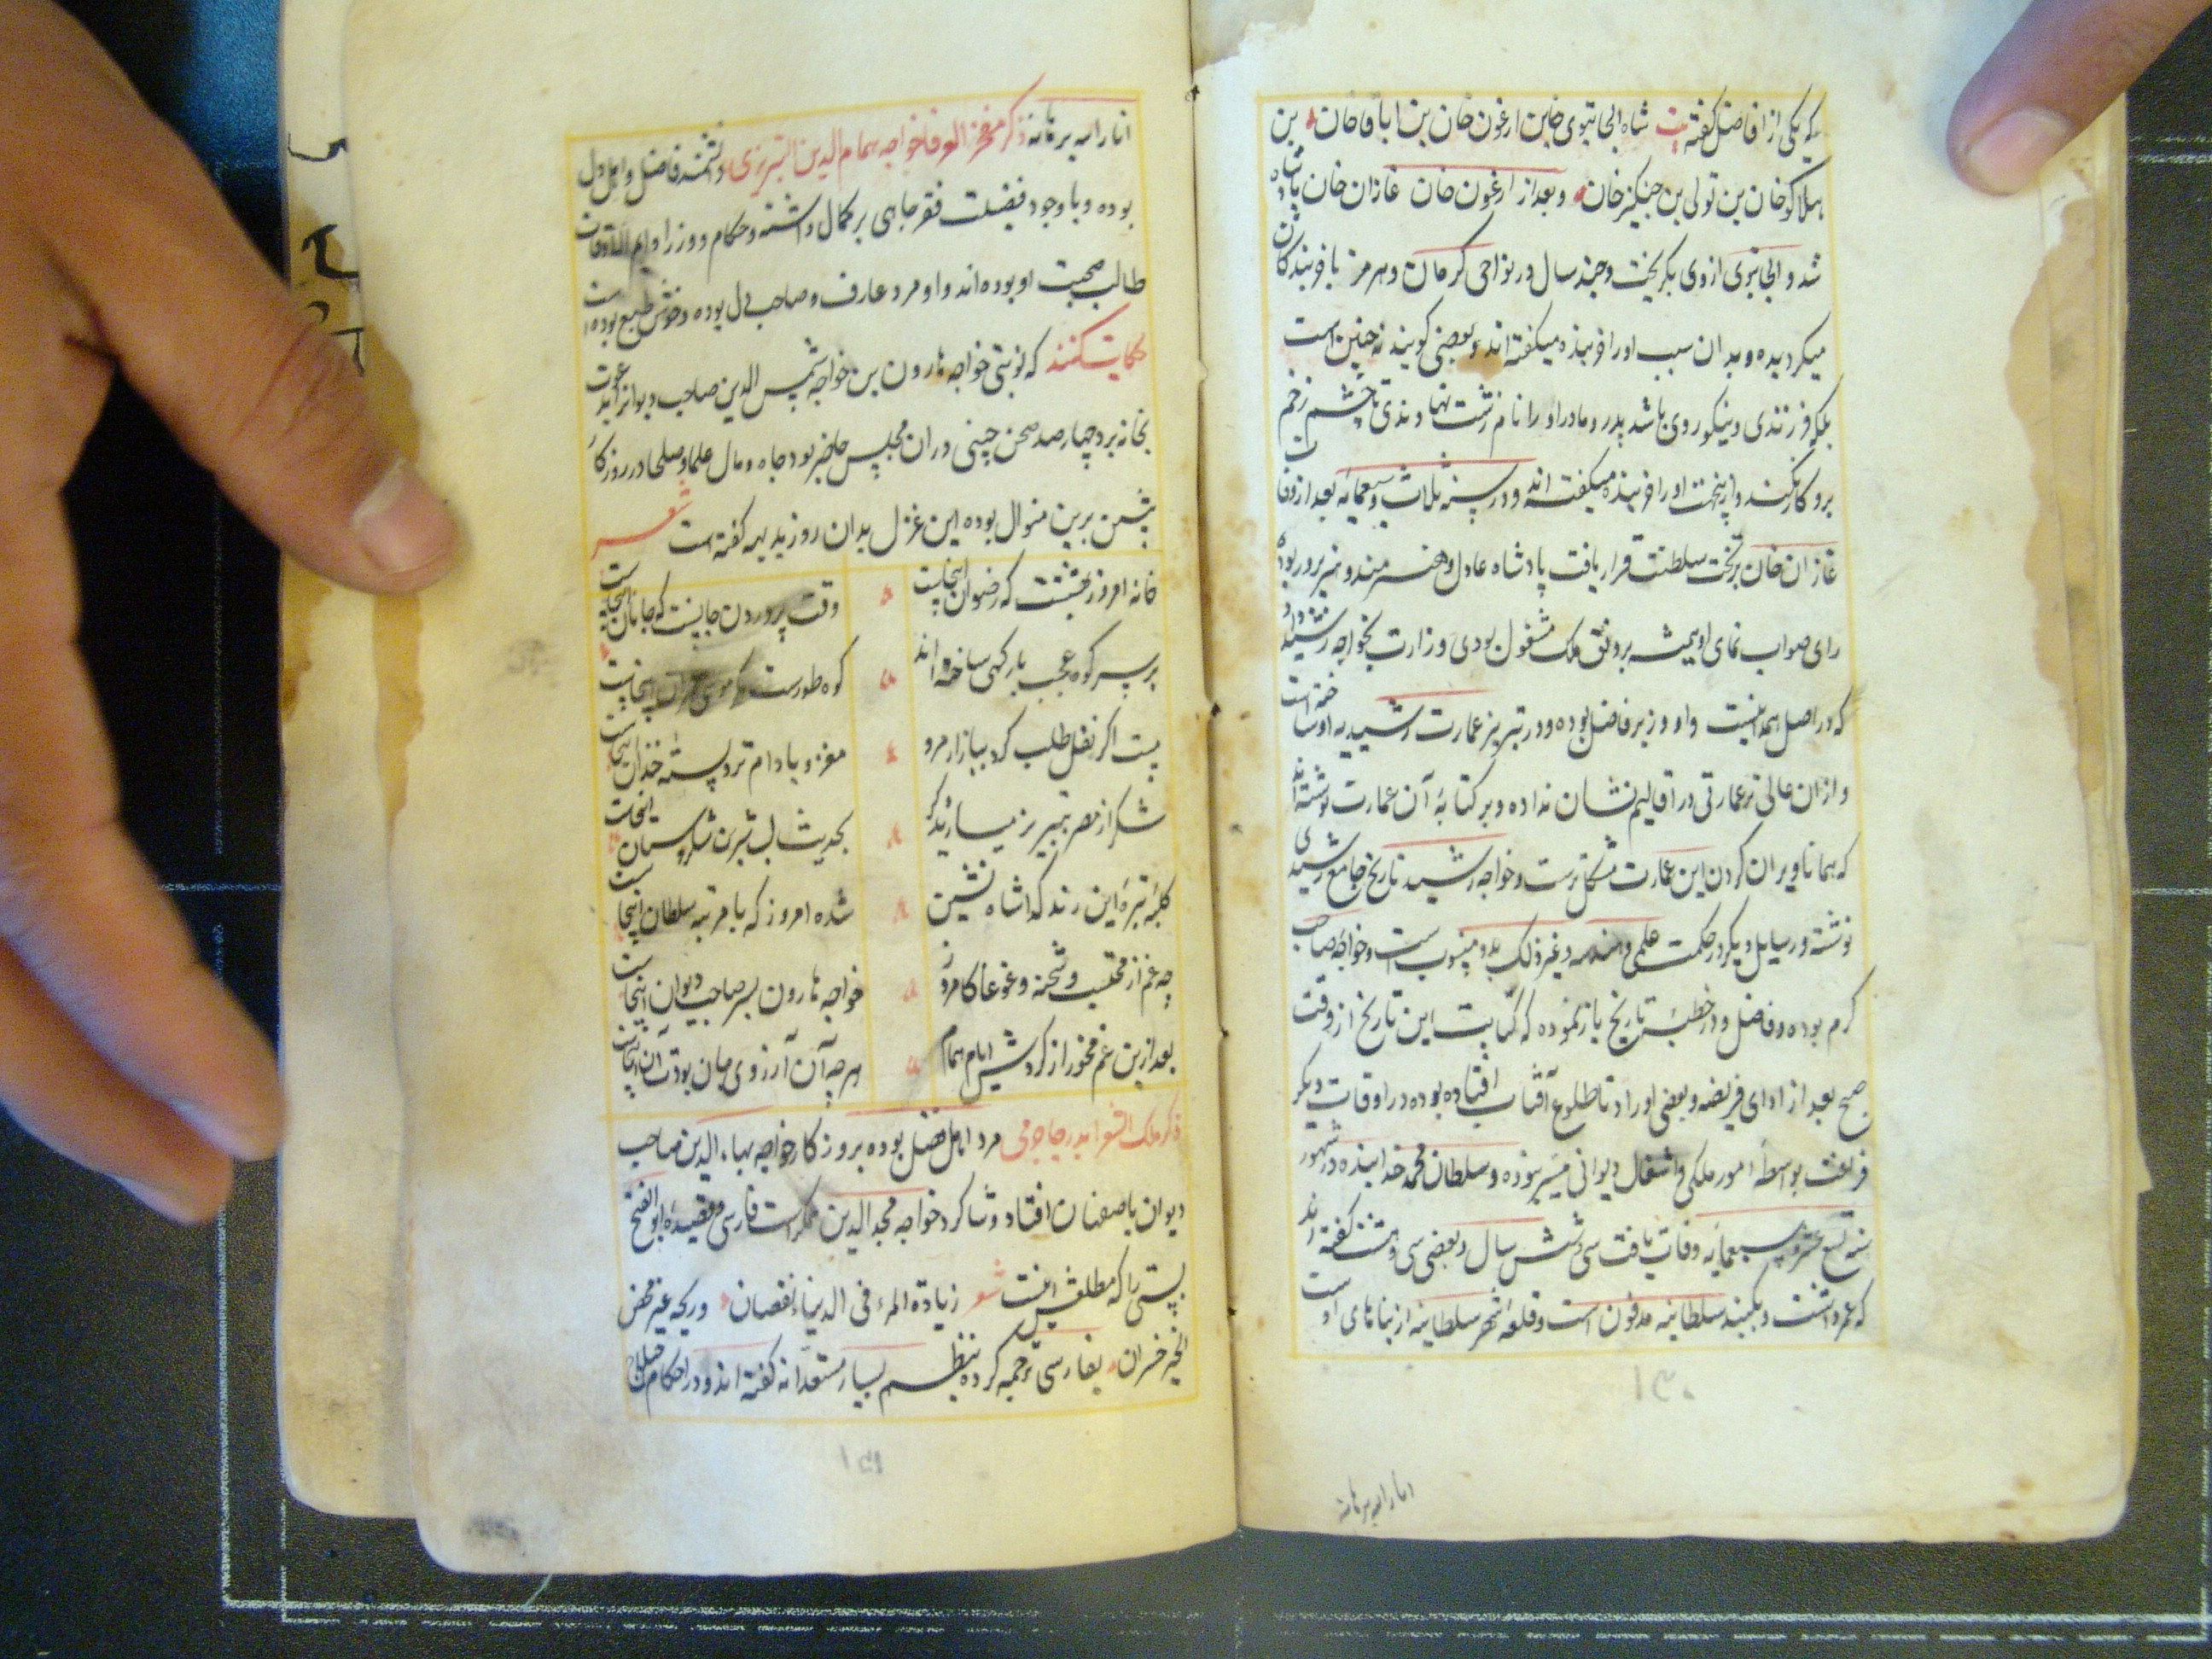 که یکی از افاضل گفته بیت شاه الجایتوی خان بن ارغون خان بن اباقاخان بن
هلاکو خان بن تولی بن جنکیز خان وبعد از ارغون خان غازان خان پادشاه
شد و الجایتوی از وی بکریخت وچند سال در نواحی کرمان وهرمز با خربندکان
میکردیده و بدان سبب اورا خربنده میکفته اند و بعضی کویند نه چنین است
بلکه فرزندی و نیکو روی باشد پدر و مادر او را نام زشت نهادندی تا چشم زخم
برو کار نکند و از ینجهت اورا خربنده میکفته اند و در سنه ثلاث وسبعمائه بعد از وفات
غازان خان بر تخت سلطنت قرار یافت پادشاه عادل و هنرمند و هنر پرور بوده
رای صواب نمای او همیشه بر رونق ملک مشغول بودی وزارت بخواجه رشید داد
که در اصل همدانیست واو وزیر فاضل بوده و در تبریز عمارت رشیدیه او ساخته است
و ازان عالی تر عمارتی در اقالیم نشان نداده و بر کتابه آن عمارت نوشته اند
که همانا ویران کردن این عمارت مشکلترست وخواجه رشید تاریخ جامع رشیدی
نوشته و رسایل دیکر در حکمت علمی و هندسه وغیر ذلک بدو منسوب است وخواجه صاحب
کرم بوده و فاضل و در خطبه تاریخ باز نموده که کتابت این تاریخ از وقت
صبح بعد از ادای فریضه وبعضی اوراد تا طلوع آفتاب افتاده بوده در اوقات دیکر
فراغت بواسطه امور ملکی و اشغال دیوانی میسر نبوده و سلطان محمد خدابنده در شهور
سنه تسع عشر و سبعمایه وفات یافت سی وشش سال وبعضی سی و هشت گفته اند
که عمر داشت و بکنبد سلطانیه مدفون است و قلعه شهر سلطانیه از بناهای او است
انار الله برهانه
انار الله برهانه ذکر مفخر العرفا خواجه همام الدین التبریزی دانشمند فاضل و اهل دل
بوده و با وجود فضیلت فقر جاهی بر کمال داشته و حکام و وزرا
طالب صحبت او بوده اند و او مرد عارف و صاحب دل بوده وخوش طبع بوده است
حکایت کنند که نوبتی خواجه هارون بن خواجه شمس الدین صاحب دیوانرا بدعوت
بخانه برد چهارصد صحن چینی دران مجلس حاضر بود جاه ومال علما وصلحا در روزکار
پیشین برین منوال بوده این غزل بدان روز بدیهه کفته است شعر
خانه امروز بهشتست که رضوان اینجاست وقت پروردن جانست که جانان اینجاست
بر سر کوه عجب بارکهی ساخته اند کوه طورست که موسی اینجاست
مست اکر نقل طلب کرد ببازار مرو مغز وبادام تر و پسته خندان اینجاست
شکر از مصر بتبریز میارید دکر بحدیث لب شیرین شکرستان اینجاست
کلبه تیره این رند کدا شاه نشین شده امروز که با مرتبه سلطان اینجاست
چه غم از محتسب و شحنه و غوغا کامروز خواجه هارون پسر صاحب دیوان اینجاست
بعد ازین غم مخور از کردش ایام همام هرچه آن آرزوی جان بودت آن اینجاست
ذکر ملک الشعرا بدر جاجرمی مرد اهل فضل بوده بروزکار خواجه بهاء الدین صاحب
دیوان باصفهان افتاد و شاکرد خواجه مجد الدین همکرست فارسی قصیده ابو الفتح
بستی را که مطلعش اینست شعر زیادة المرء فی الدنیا نقصان وربحه غیر محض
الخیر خسران بفارسی ترجمه کرده بنظم بسیار مستعدانه کفته اند و در احکام
۱۳۰
۱۳۱